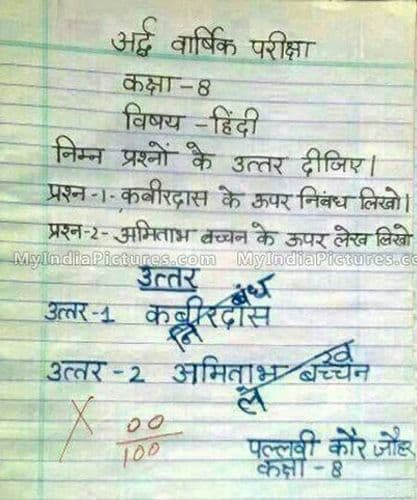 अर्द्ध वार्षिक परीक्षा
कक्षा -8
विषय -हिंदी
निम्न प्रश्नों के उत्तर दीजिए।
प्रश्न-1- कबीरदास के ऊपर निबंध लिखो।
प्रश्न-2- अमिताभ बच्चन के ऊपर लेख लिखो
MyIndiaPictures.com MyIndiaPictures.co
उत्तर
उत्तर-1 कबीरदास
निबंध
उत्तर -2 अमिताभ बच्चन
लेख
X 00
100
पल्लवी कौर जौहर
कक्षा -8